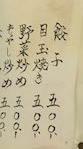 餃子 五〇〇
目玉焼き 五〇〇
野菜炒め 五〇〇
もやし炒め 五〇〇